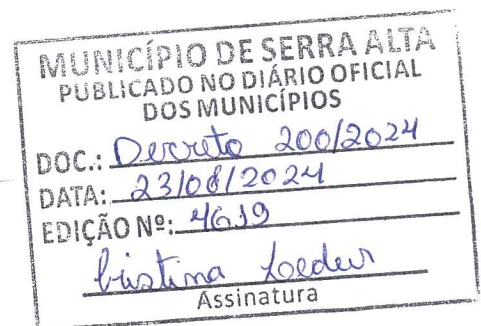 MUNICÍPIO DE SERRA ALTA
PUBLICADO NO DIÁRIO OFICIAL
DOS MUNICÍPIOS
DOC.: Decreto 200/2024
DATA: 23/08/2024
EDIÇÃO Nº: 4619
Cristina
Assinatura